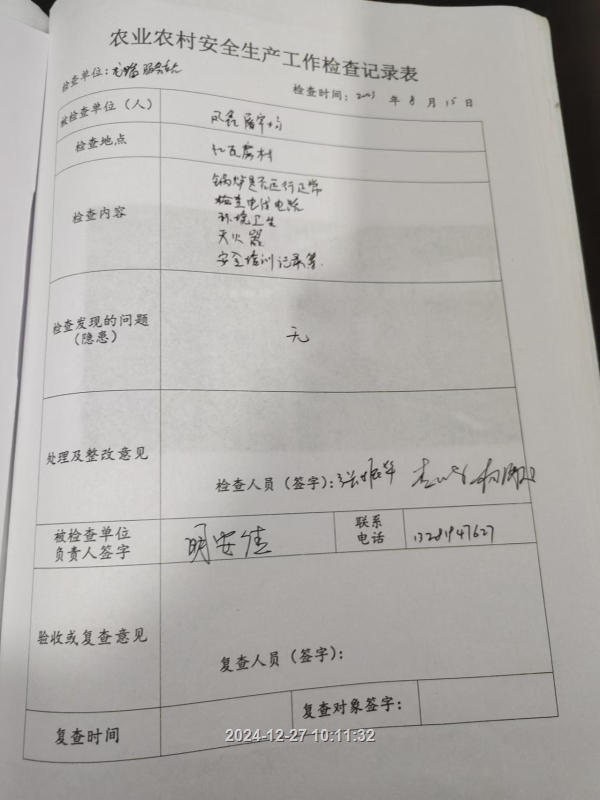 农业农村安全生产工作检查记录表
检查单位：
检查时间：2023 年 8 月 15 日
被检查单位（人）
检查地点 红瓦房村
检查内容 锅炉是否运行正常
检查电线电路
环境卫生
灭火器
安全培训记录等.
检查发现的问题
（隐患） 无
处理及整改意见
检查人员（签字）：张振华
被检查单位
负责人签字 明安佳
联系
电话 13281947627
验收或复查意见
复查人员（签字）：
复查时间
复查对象签字：
2024-12-27 10:11:32